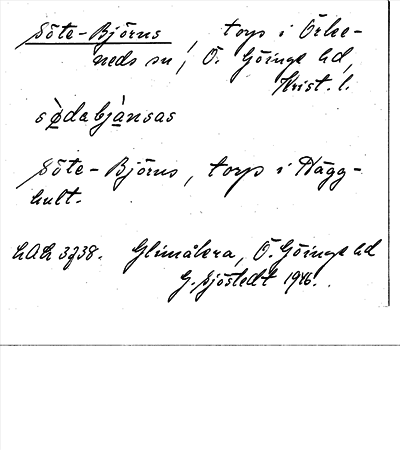 Söte-Björns, torp i Örke-
neds sn, Ö. Göinge hd,
Krist. l.
sø̀dabjànsas
Söte-Björns, torp i Hägg-
hult.
LAL 3238. Glimåkra, Ö. Göinge hd
G. Sjöstedt 1946.